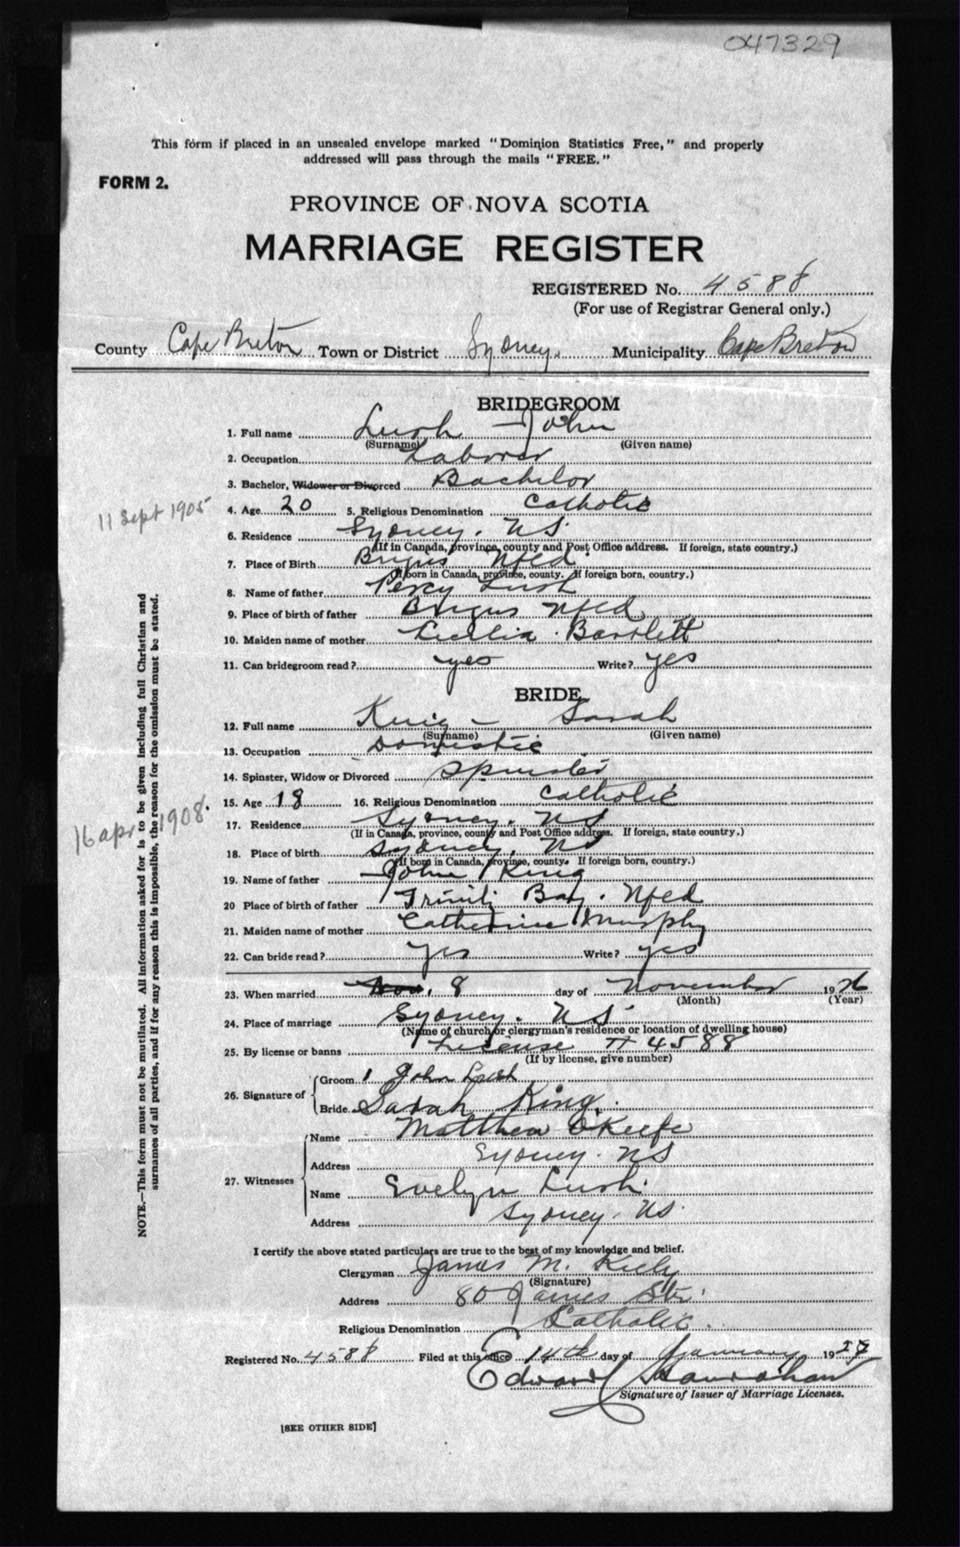 047329
This form if placed in an unsealed envelope marked "Dominion Statistics Free," and properly
addressed will pass through the mails "FREE."
FORM 2.
PROVINCE OF NOVA SCOTIA
MARRIAGE REGISTER
REGISTERED No. 4588
(For use of Registrar General only.)
County Cape Breton Town or District Sydney. Municipality Cape Breton
BRIDEGROOM
1. Full name Lush John
(Surname) (Given name)
2. Occupation Laborer
3. Bachelor, Widower or Divorced Bachelor
11 Sept 1905
4. Age 20 5. Religious Denomination Catholic
6. Residence Sydney. NS
(If in Canada, province, county and Post Office address. If foreign, state country.)
7. Place of Birth Brigus Nfld
(If born in Canada, province, county. If foreign born, country.)
8. Name of father Percy Lush
9. Place of birth of father Brigus Nfld
10. Maiden name of mother Cecilia Bartlett
11. Can bridegroom read? yes Write? yes
BRIDE
12. Full name King - Sarah
(Surname) (Given name)
13. Occupation Domestic
14. Spinster, Widow or Divorced Spinster
15. Age 18 16. Religious Denomination Catholic
16 apr 1908.
17. Residence Sydney. NS
(If in Canada, province, county and Post Office address. If foreign, state country.)
18. Place of birth Sydney, NS
(If born in Canada, province, county. If foreign born, country.)
19. Name of father John King
20 Place of birth of father Trinity Bay. Nfld
21. Maiden name of mother Catherine Murphy
22. Can bride read? Yes Write? yes
23. When married Nov. 8 day of November 1926
(Month) (Year)
24. Place of marriage Sydney. NS
(Name of church or clergyman's residence or location of dwelling house)
25. By license or banns License # 4588
(If by license, give number)
26. Signature of Groom John Lush
Bride Sarah King.
27. Witnesses Name Matthew O'Keefe
Address Sydney. NS
Name Evelyn Lush
Address Sydney. NS.
I certify the above stated particulars are true to the best of my knowledge and belief.
Clergyman James M. Kiely
(Signature)
Address 80 James Str.
Religious Denomination Catholic.
Registered No. 4588 Filed at this office 14th day of January 1927
Edward Hanrahan
Signature of Issuer of Marriage Licenses.
[SEE OTHER SIDE]
NOTE.—This form must not be mutilated. All information asked for is to be given including full Christian and
surnames of all parties, and if for any reason this is impossible, the reason for the omission must be stated.